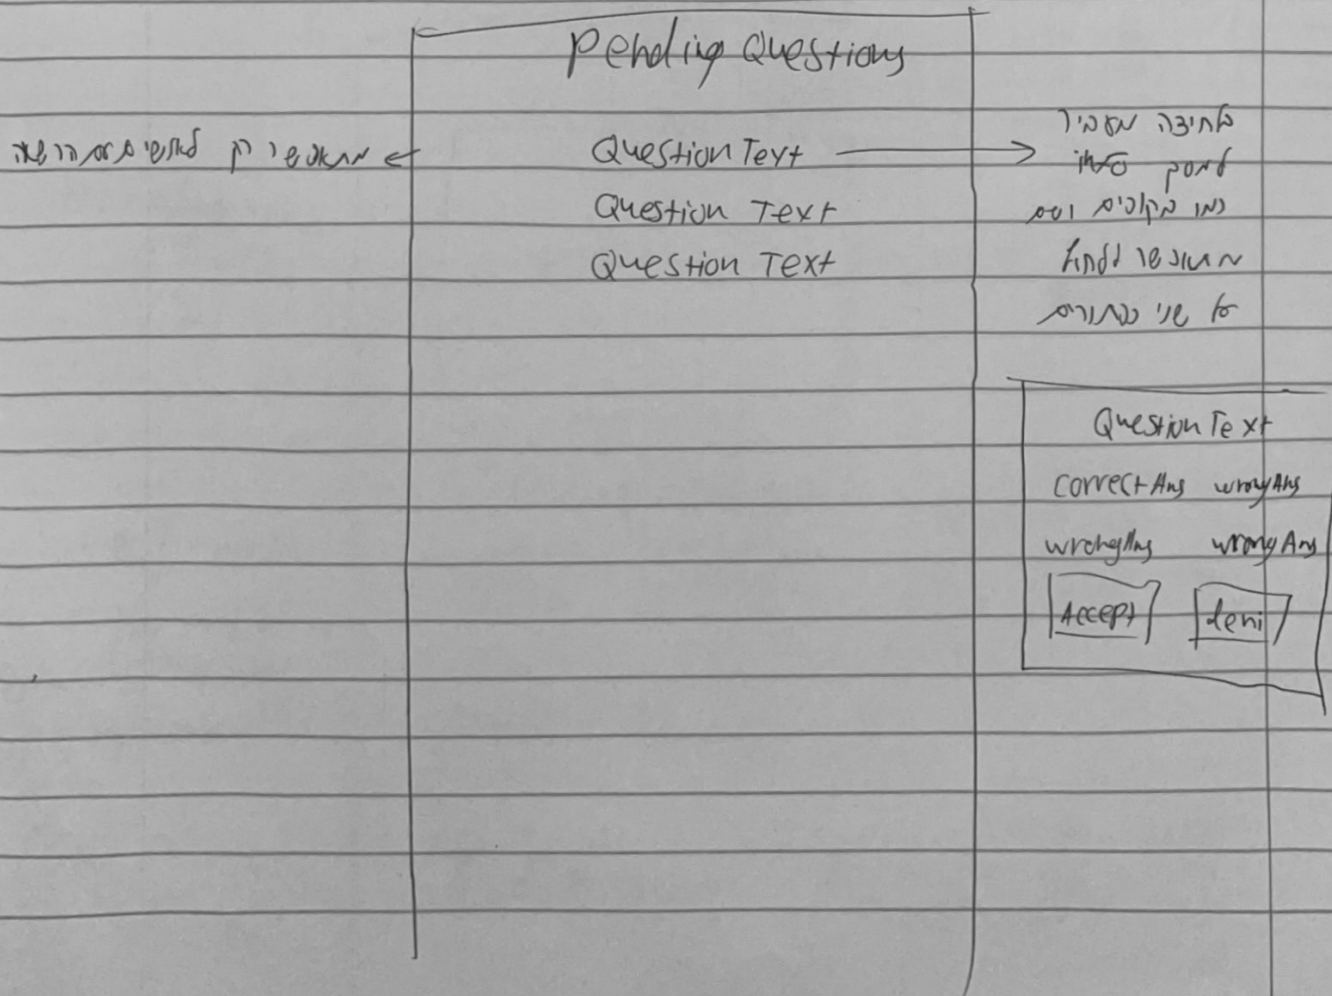 Pending Questions
מתאפשר רק לאנשים עם הרשאה
Question Text
Question Text
Question Text
לחיצה מעביר
למסך
כמו מקודם ושם
מתאפשר ללחוץ
על שני כפתורים
Question Text
correct Ans wrong Ans
wrong Ans wrong Ans
Accept deni